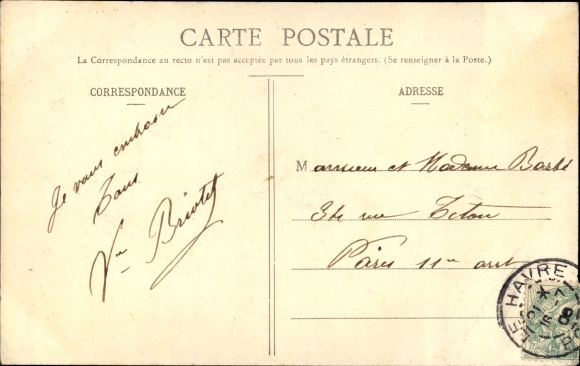 CARTE POSTALE
La Correspondance au recto n'est pas acceptée par tous les pays étrangers. (Se renseigner à la Poste.)
CORRESPONDANCE
Je vous embrasse
Tous
Vve Briotet
ADRESSE
Monsieur et Madame Barbé
rue Titon
Paris 11me arrt
LE HAVRE